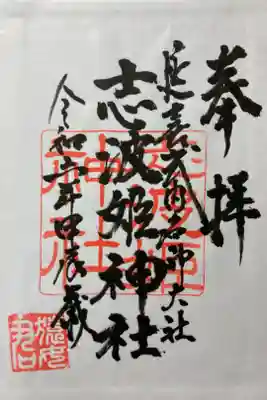 奉拝
延喜式内名神大社
志波姫神社
令和六年甲辰歳